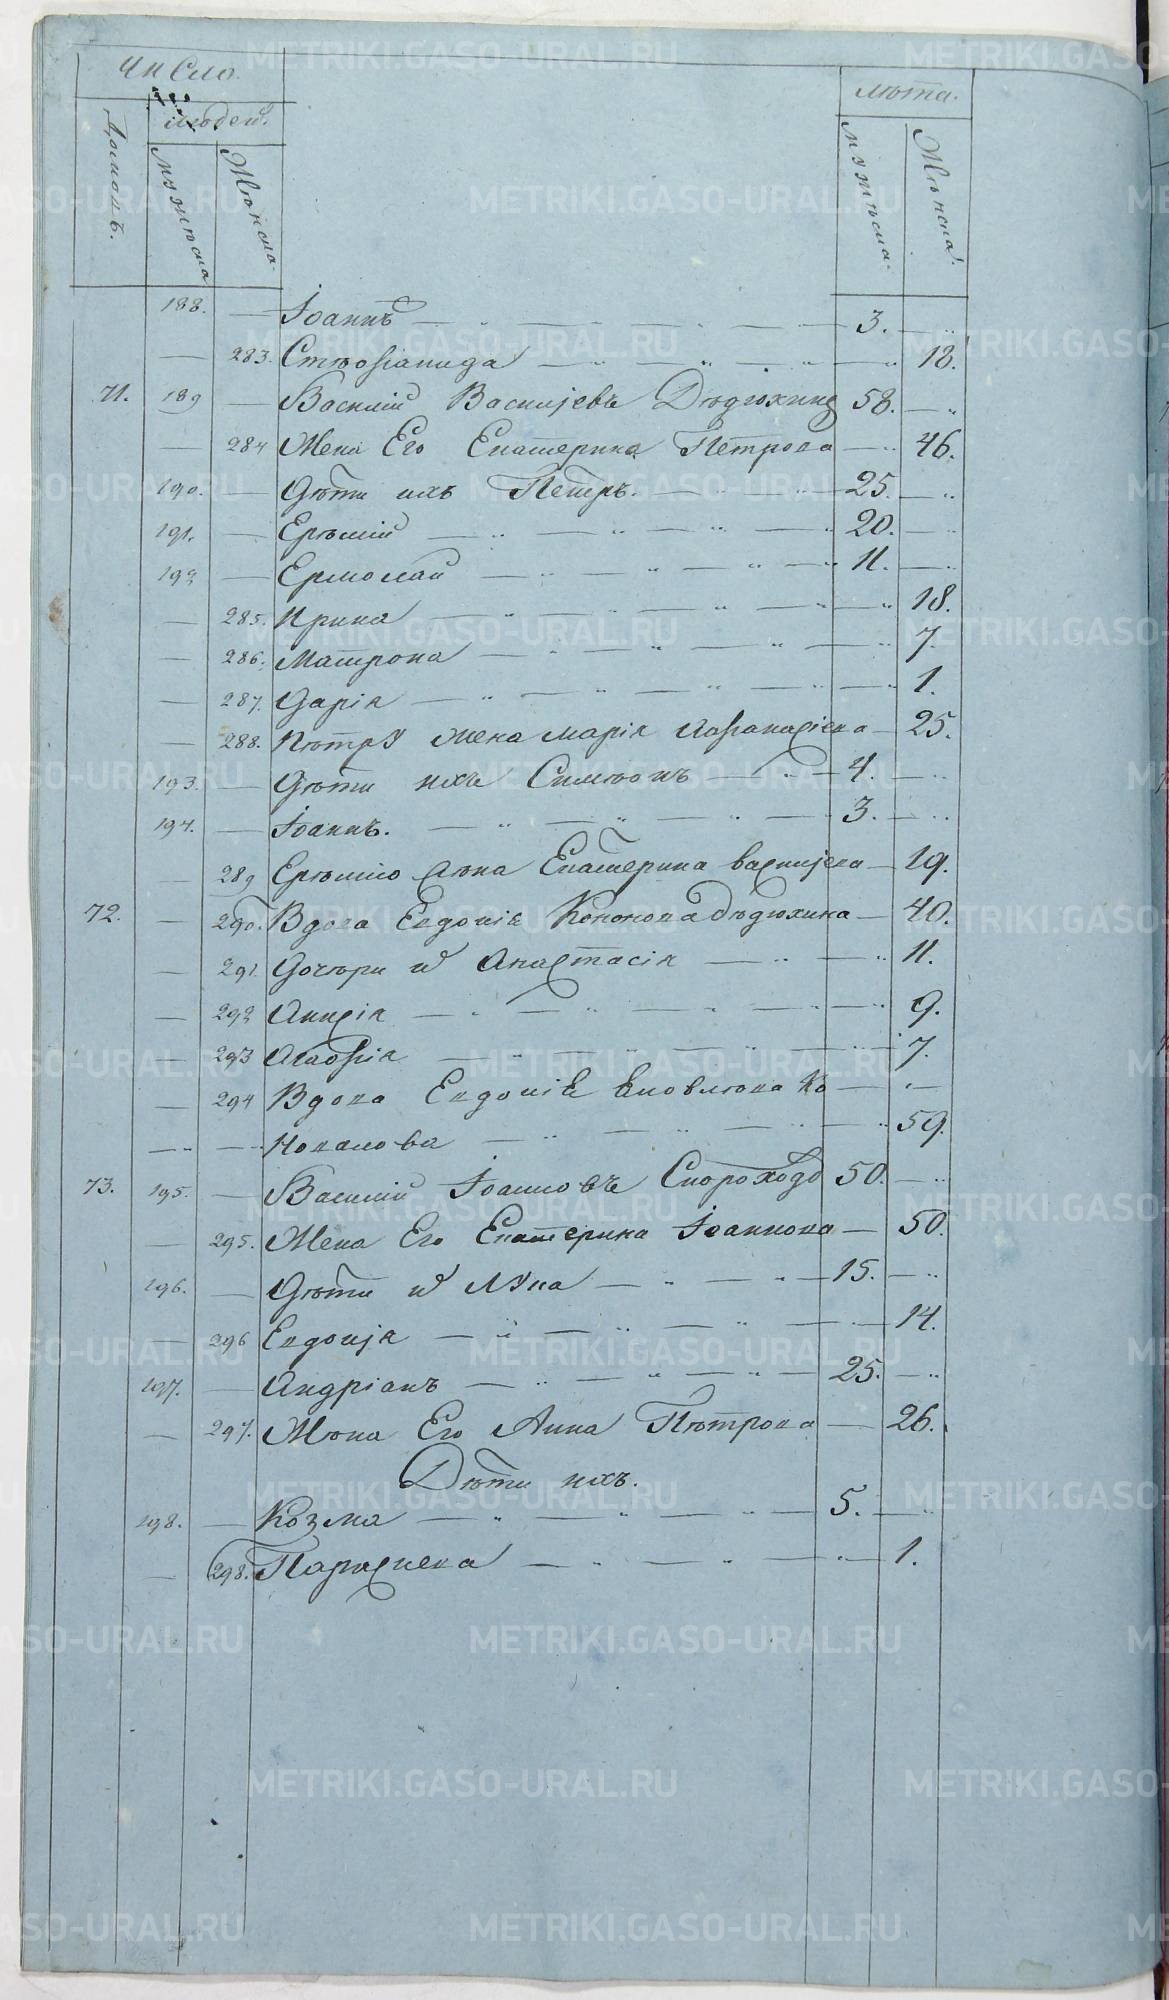 Число
Людей.
Лѣта.
Домовъ.
мужеска
Женска.
мужеска.
Женска.
188. Іоаннъ 3.
283. Стефанида 18.
71. 189 Василій Васильевъ Дедюхинъ 58.
284 Жена Его Екатерина Петрова 46.
190. Дѣти ихъ Петръ. 25.
191. Еремій 20.
192 Ермолай 11.
285. Ирина 18.
286. Матрона 7.
287. Дарія 1.
288. Петру жена Марія Афанасіева 25.
193. Дѣти ихъ Симеонъ 4.
194. Іоаннъ. 3.
289 Еремію жена Екатерина Василіева 19.
72. 290. Вдова Евдокія Кононова Дедюхина 40.
291. Дочери ея Анастасія 11.
292 Анисія 9.
293 Агафія 7.
294 Вдова Евдокія Яковлева Ко
новалова 59.
73. 195. Василій Іоанновъ Скороходо 50.
295. Жена Его Екатерина Іоаннова 50.
196. Дѣти ихъ Лука 15.
296 Евдокія 14.
197. Андріанъ 25.
297. Жена Его Анна Петрова 26.
Дѣти ихъ.
198. Козма 5.
298. Параскева 1.
METRIKI.GASO-URAL.RU